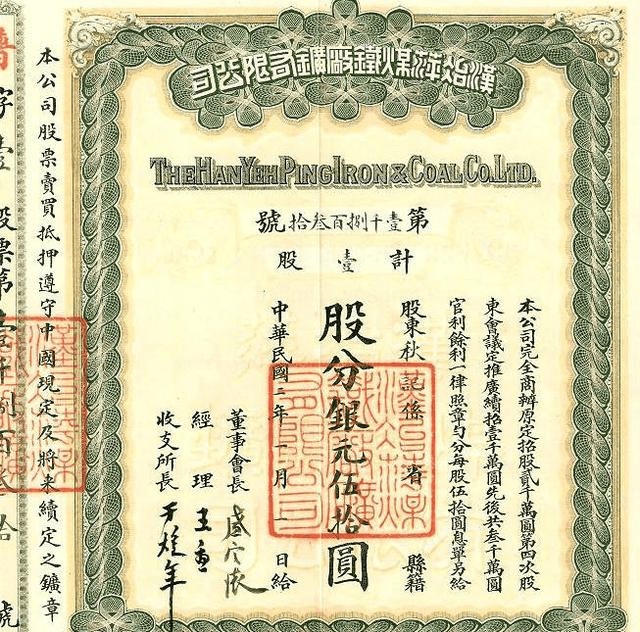 漢冶萍煤鐵廠鑛有限公司
THE HAN YEH PING IRON & COAL CO. LTD.
第壹千捌百叁拾號
計壹股
本公司完全商辦原定招股貳千萬圓第四次股
東會議定推廣續招壹千萬圓先後共叁千萬圓
官利餘利一律照章勻分每股伍拾圓息單另給
股東秋記係 省 縣籍
股分銀元伍拾圓
中華民國二年一月一日給
董事會長 盛宣懷
經理 王勳
收支所長 于焌年
本公司股票賣買抵押遵守中國現定及將來續定之鑛章
字壹股票第壹千捌百叁拾號